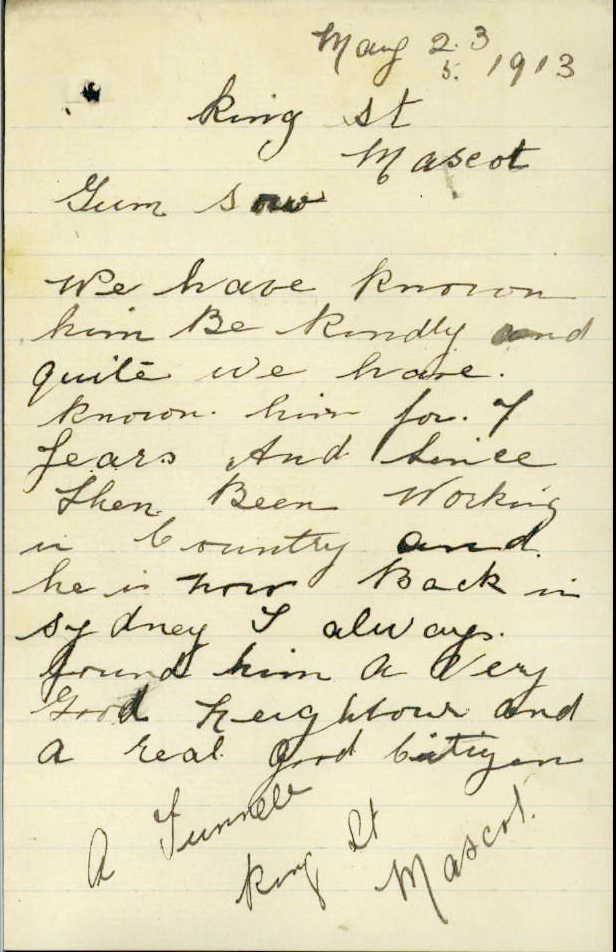 May 23
5. 1913
King St
Mascot
Gum Sow
We have known
him Be kindly and
quite we have.
known. him for. 7
years And Since
then Been Working
in Country and.
he is now Back in
Sydney I always.
found him a Very
Good Neighbour and
a real good Citizen
A Funnell
King St
Mascot.